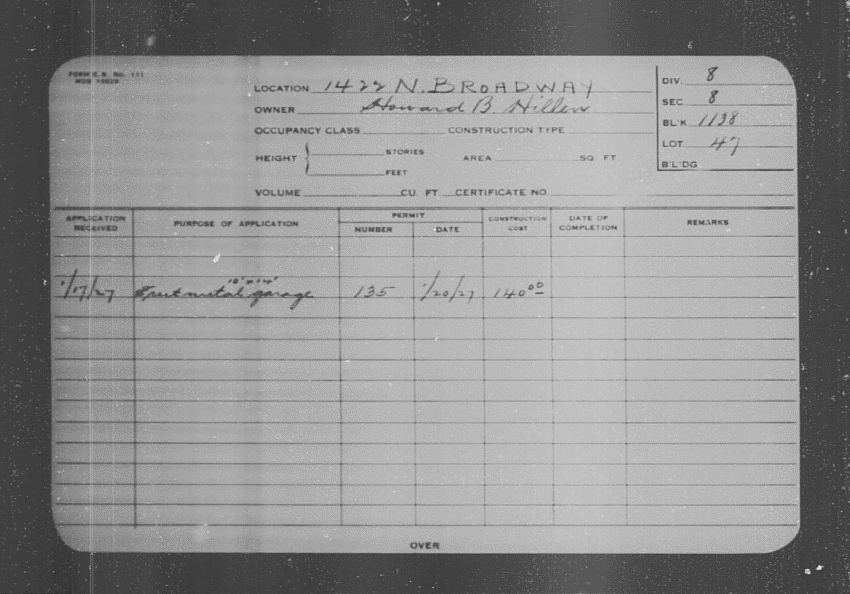 FORM C. B. No. 111
LOCATION 1422 N. BROADWAY
OWNER Howard B. Hillen
OCCUPANCY CLASS CONSTRUCTION TYPE
HEIGHT STORIES AREA SQ FT
FEET
VOLUME CU. FT CERTIFICATE NO.
DIV. 8
SEC 8
BL'K 1138
LOT 47
B'L'DG
APPLICATION RECEIVED PURPOSE OF APPLICATION PERMIT NUMBER DATE CONSTRUCTION COST DATE OF COMPLETION REMARKS
1/17/27 Erect metal garage 135 1/20/27 140 00
OVER